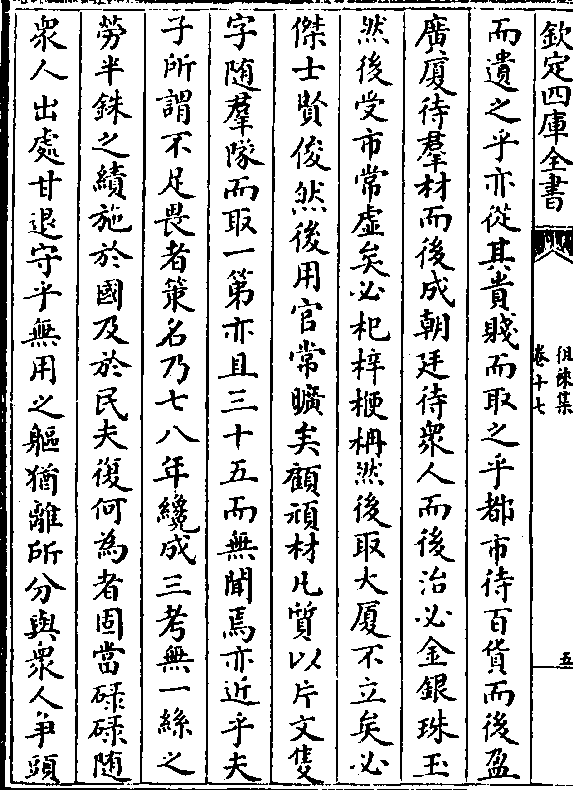 欽定四庫全書
徂徠集
卷十七
五
而遺之乎亦從其貴賤而取之乎都市待百貨而後盈
廣廈待羣材而後成朝廷待衆人而後治必金銀珠玉
然後受市常虛矣必杞梓楩柟然後取大厦不立矣必
傑士賢俊然後用官常曠矣顧頑材凡質以片文隻
字随羣隊而取一第亦且三十五而無聞焉亦近乎夫
子所謂不足畏者策名乃七八年纔成三考無一絲之
勞半銖之績施於國及於民夫復何為者固當碌碌随
衆人出處甘退守乎無用之軀猶離所分與衆人爭頭